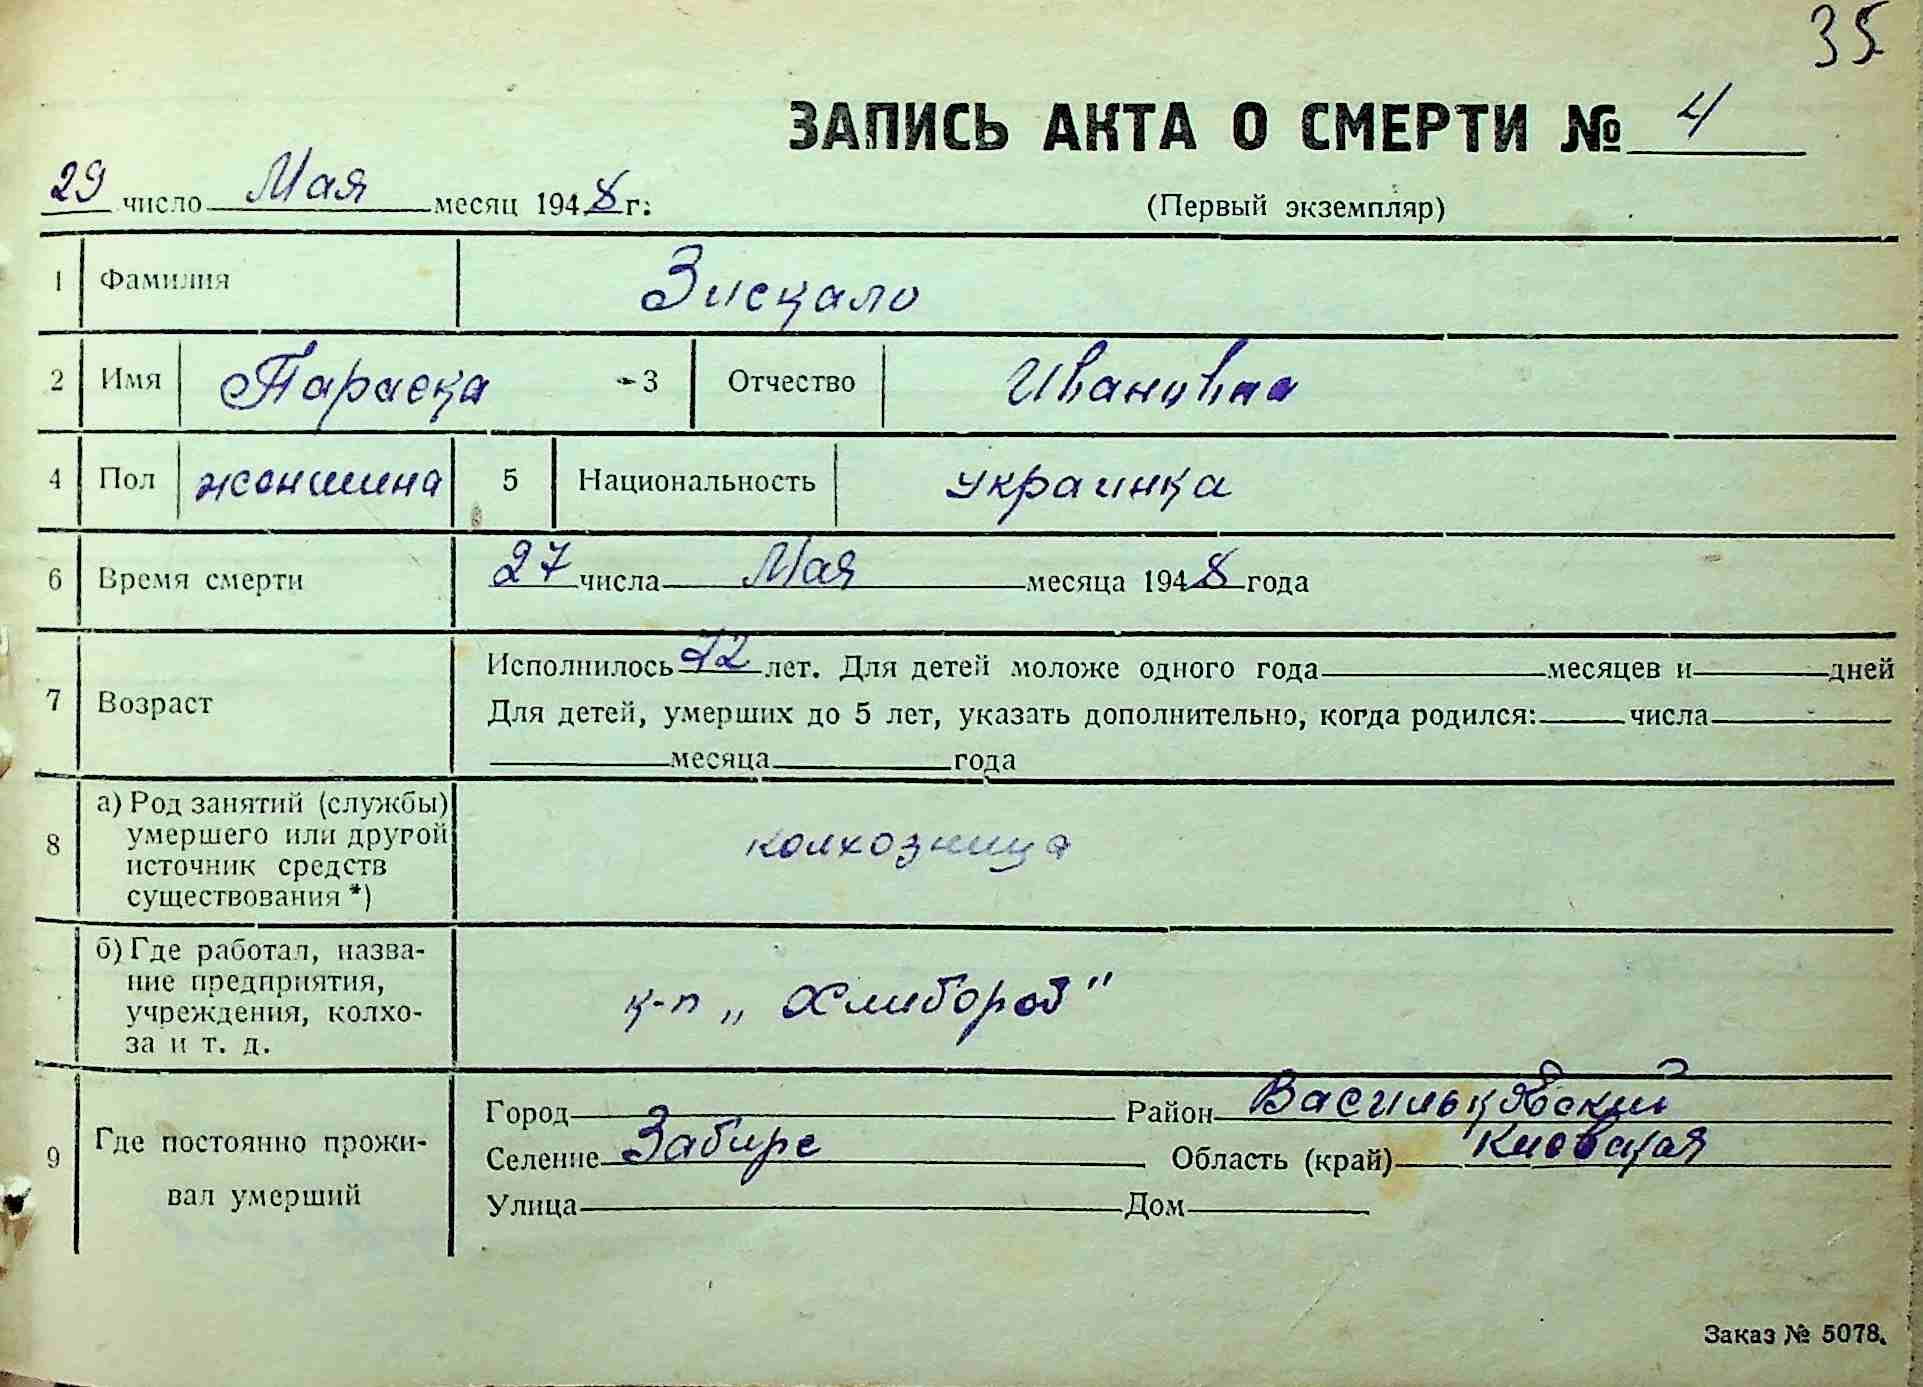 35
ЗАПИСЬ АКТА О СМЕРТИ № 4
29 число Мая месяц 1948 г:
(Первый экземпляр)
1 Фамилия Зискало
2 Имя Параска 3 Отчество Ивановна
4 Пол женшина 5 Национальность украинка
6 Время смерти 27 числа Мая месяца 1948 года
7 Возраст
Исполнилось 72 лет. Для детей моложе одного года месяцев и дней
Для детей, умерших до 5 лет, указать дополнительно, когда родился: числа
месяца года
8 а) Род занятий (службы)
умершего или другой
источник средств
существования *)
колхозница
б) Где работал, назва-
ние предприятия,
учреждения, колхо-
за и т. д.
к-п „Хлибороб"
9 Где постоянно прожи-
вал умерший
Город Район Васильковский
Селение Забирє Область (край) Киевская
Улица Дом
Заказ № 5078.